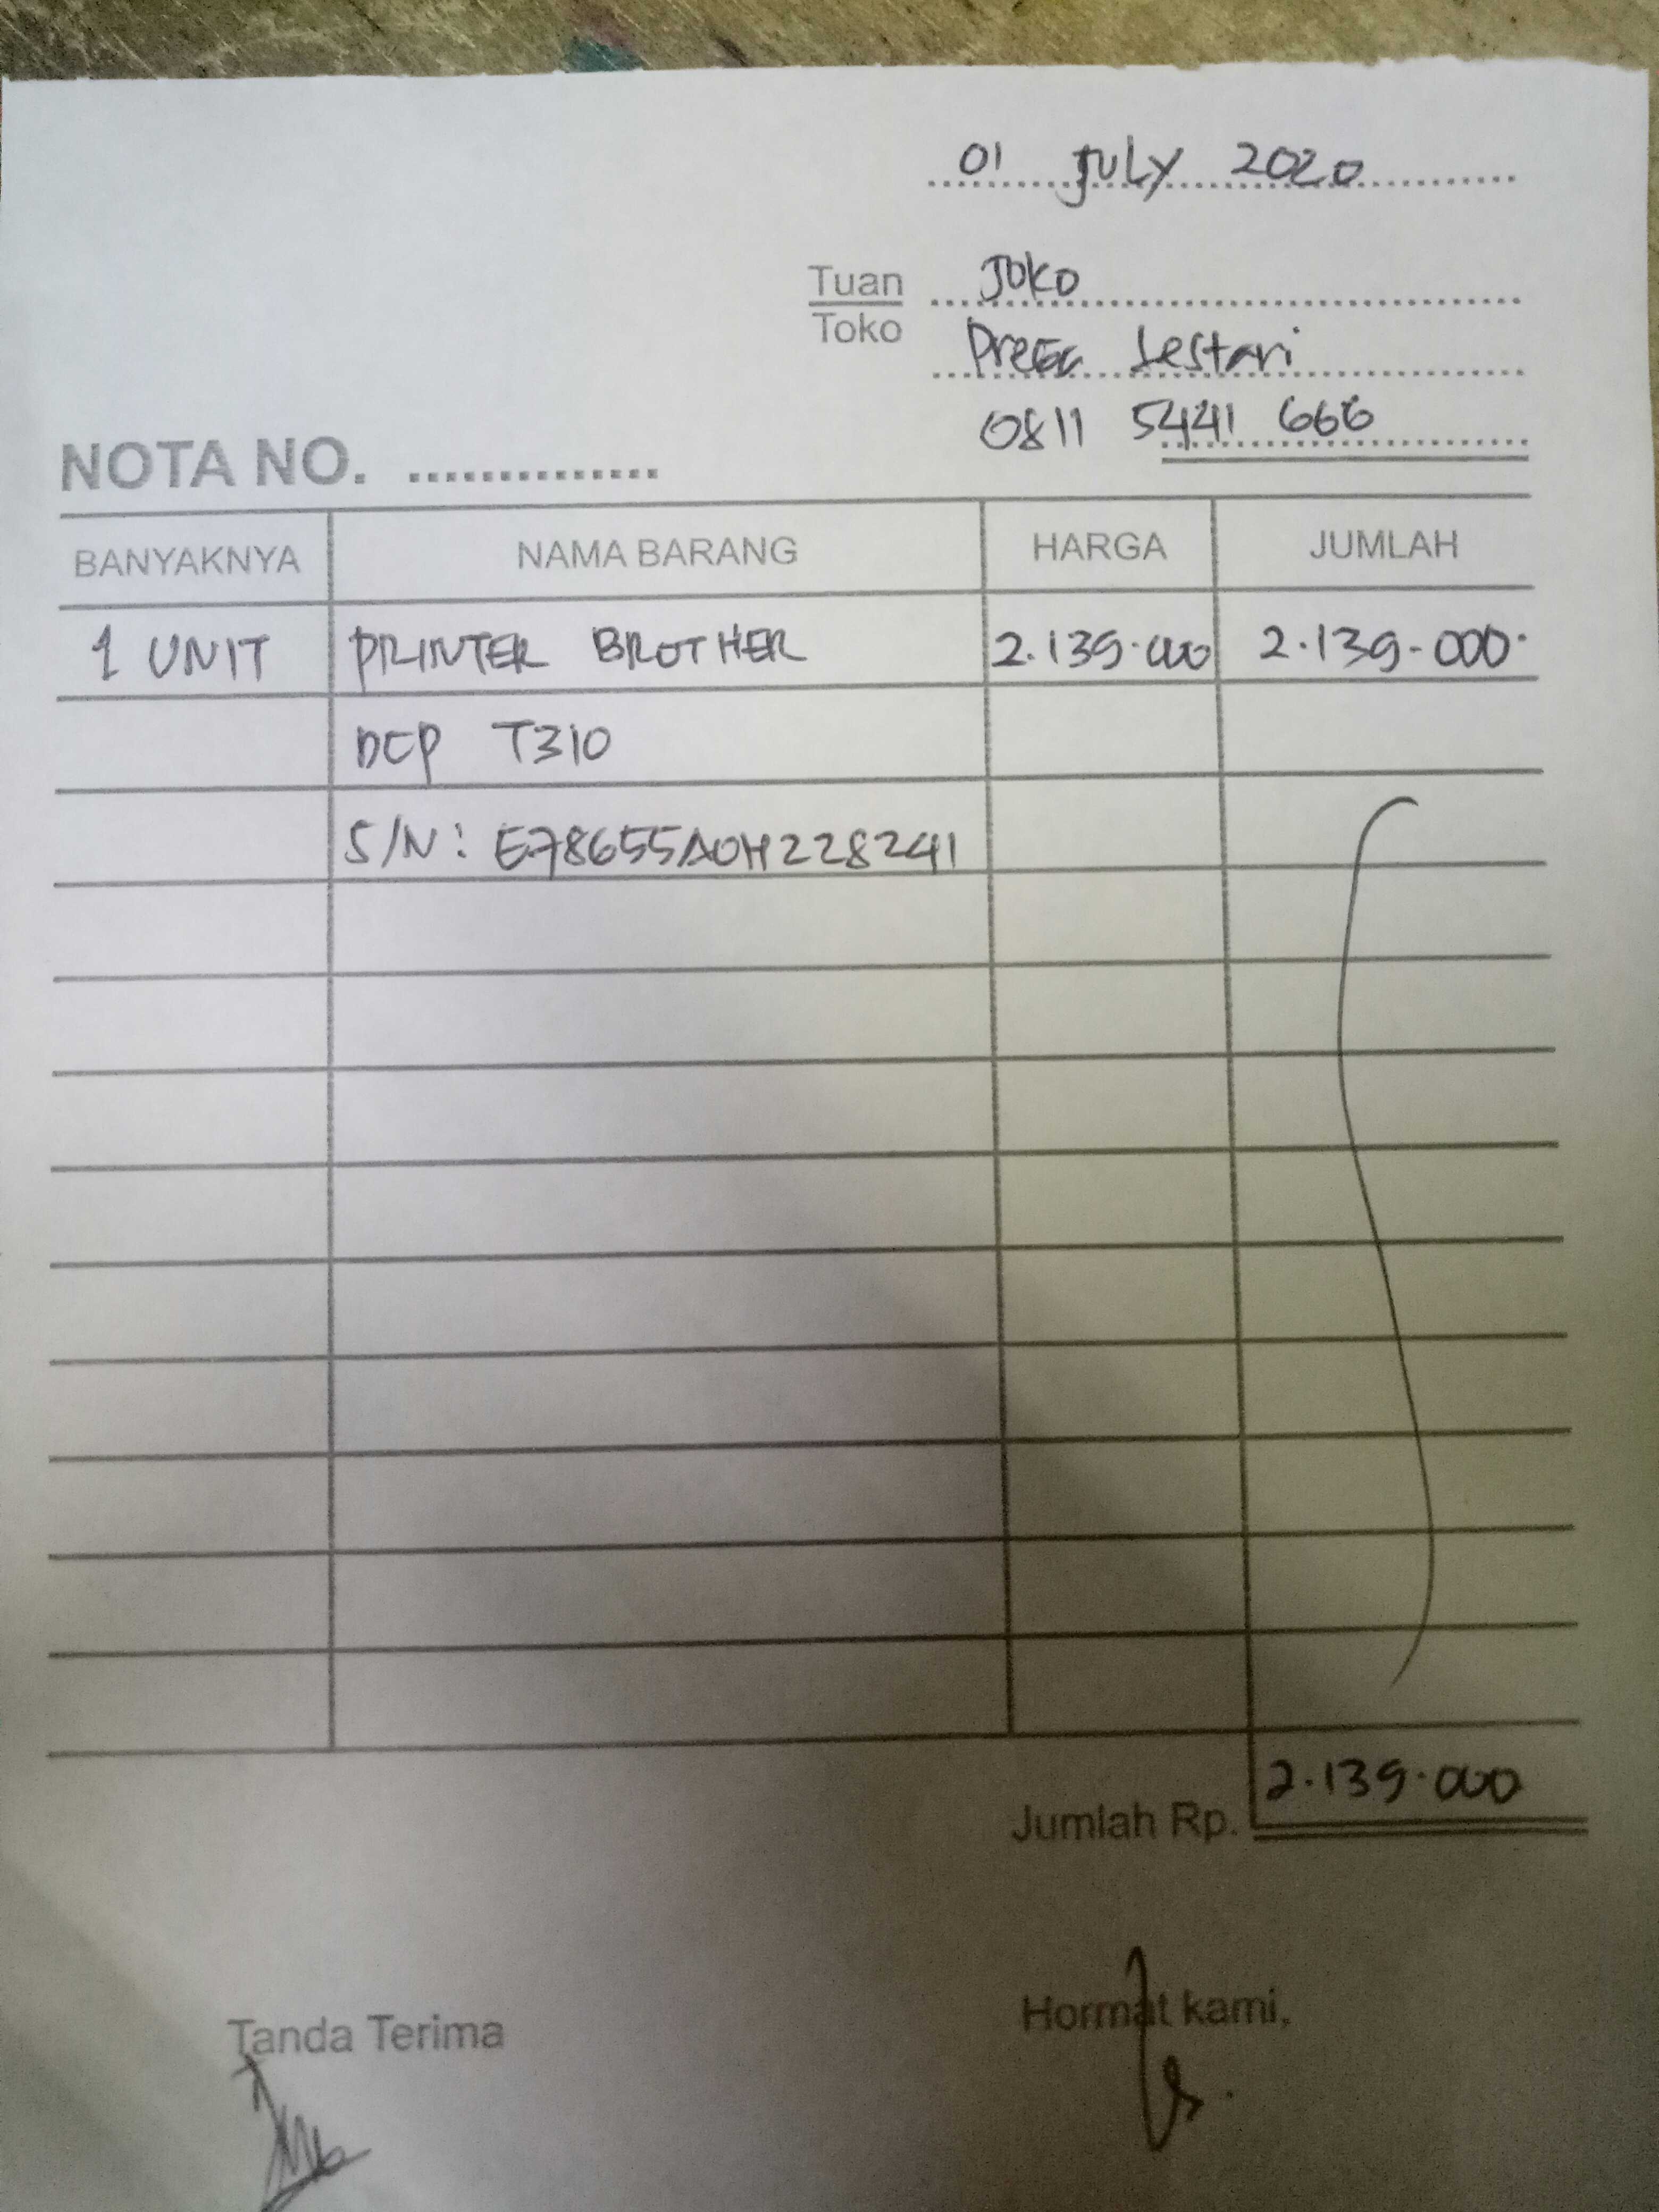 01 JULY 2020
Tuan Joko
Toko
Lestari
0811 5441 666
NOTA NO. ..............
BANYAKNYA NAMA BARANG HARGA JUMLAH
1 UNIT PRINTER BROTHER 2.139.000 2.139.000
DCP T310
S/N: E78655A0H228241
Jumlah Rp. 2.139.000
Tanda Terima Hormat kami,